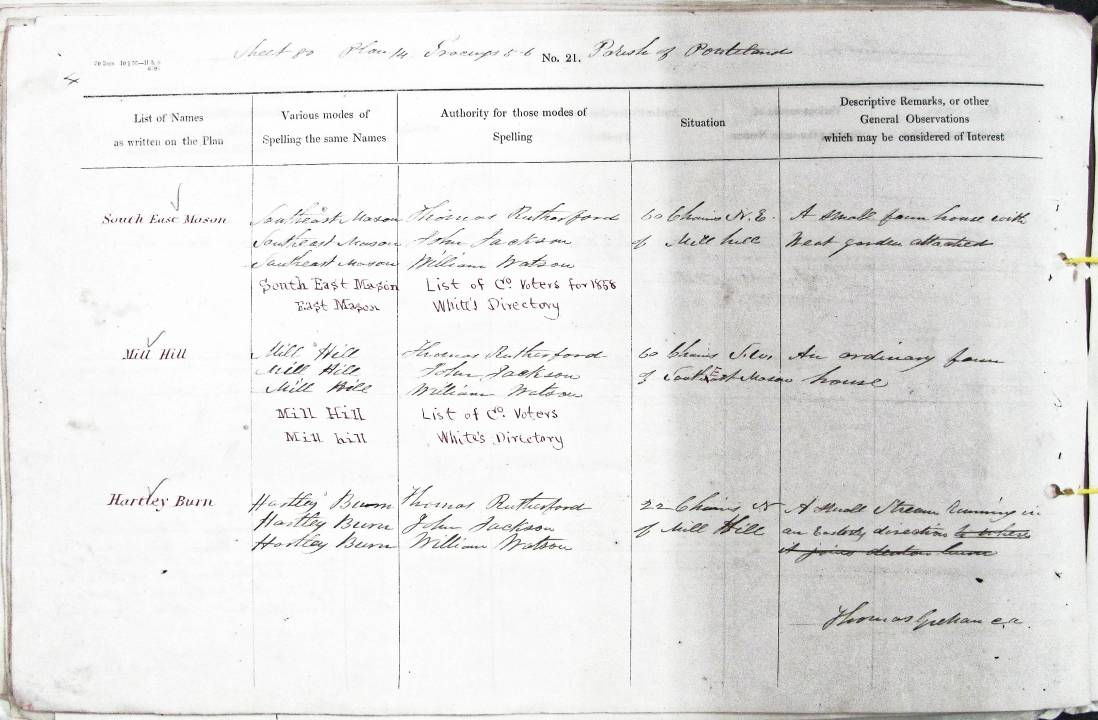 Sheet 80 Plan 14 Traceings 5-6 No. 21. Parish of Ponteland
4
List of Names
as written on the Plan
Various modes of
Spelling the same Names
Authority for those modes of
Spelling
Situation
Descriptive Remarks, or other
General Observations
which may be considered of Interest
South East Mason
Southeast Mason Thomas Rutherford
Southeast Mason John Jackson
Southeast Mason William Watson
South East Mason List of Co. Voters for 1858
East Mason White's Directory
60 Chains N.E.
of Mill hill
A small farm house with
Neat garden attached
Mill Hill
Mill Hill Thomas Rutherford
Mill Hill John Jackson
Mill Hill William Watson
Mill Hill List of Co. Voters
Mill hill White's Directory
60 Chains S.W.
of South East Mason
An ordinary farm
house
Hartley Burn
Hartley Burn Thomas Rutherford
Hartley Burn John Jackson
Hartley Burn William Watson
22 Chains N
of Mill Hill
A small Stream running in
an Easterly direction to where
it joins denton burn
Thomas